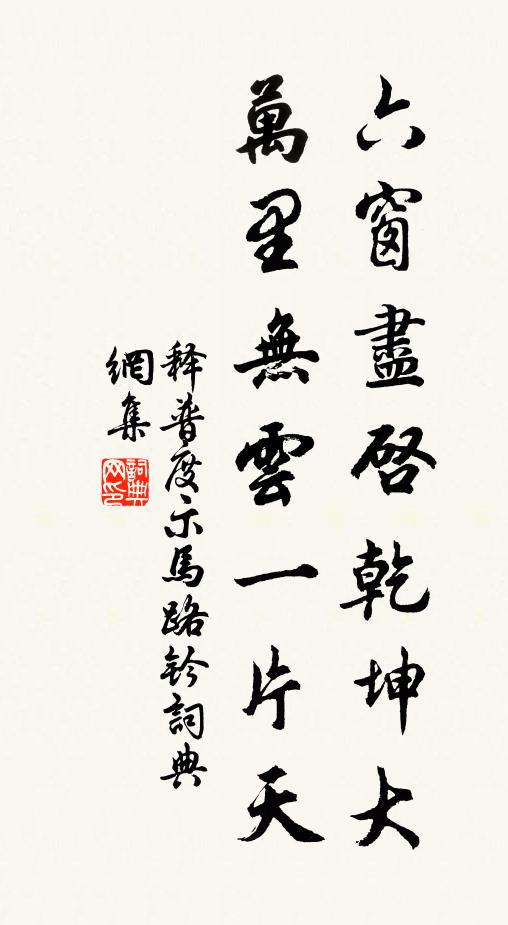 六窗盡啓乾坤大
萬里無雲一片天
释普度示馬路鈐詞典
網集
詞典
网印